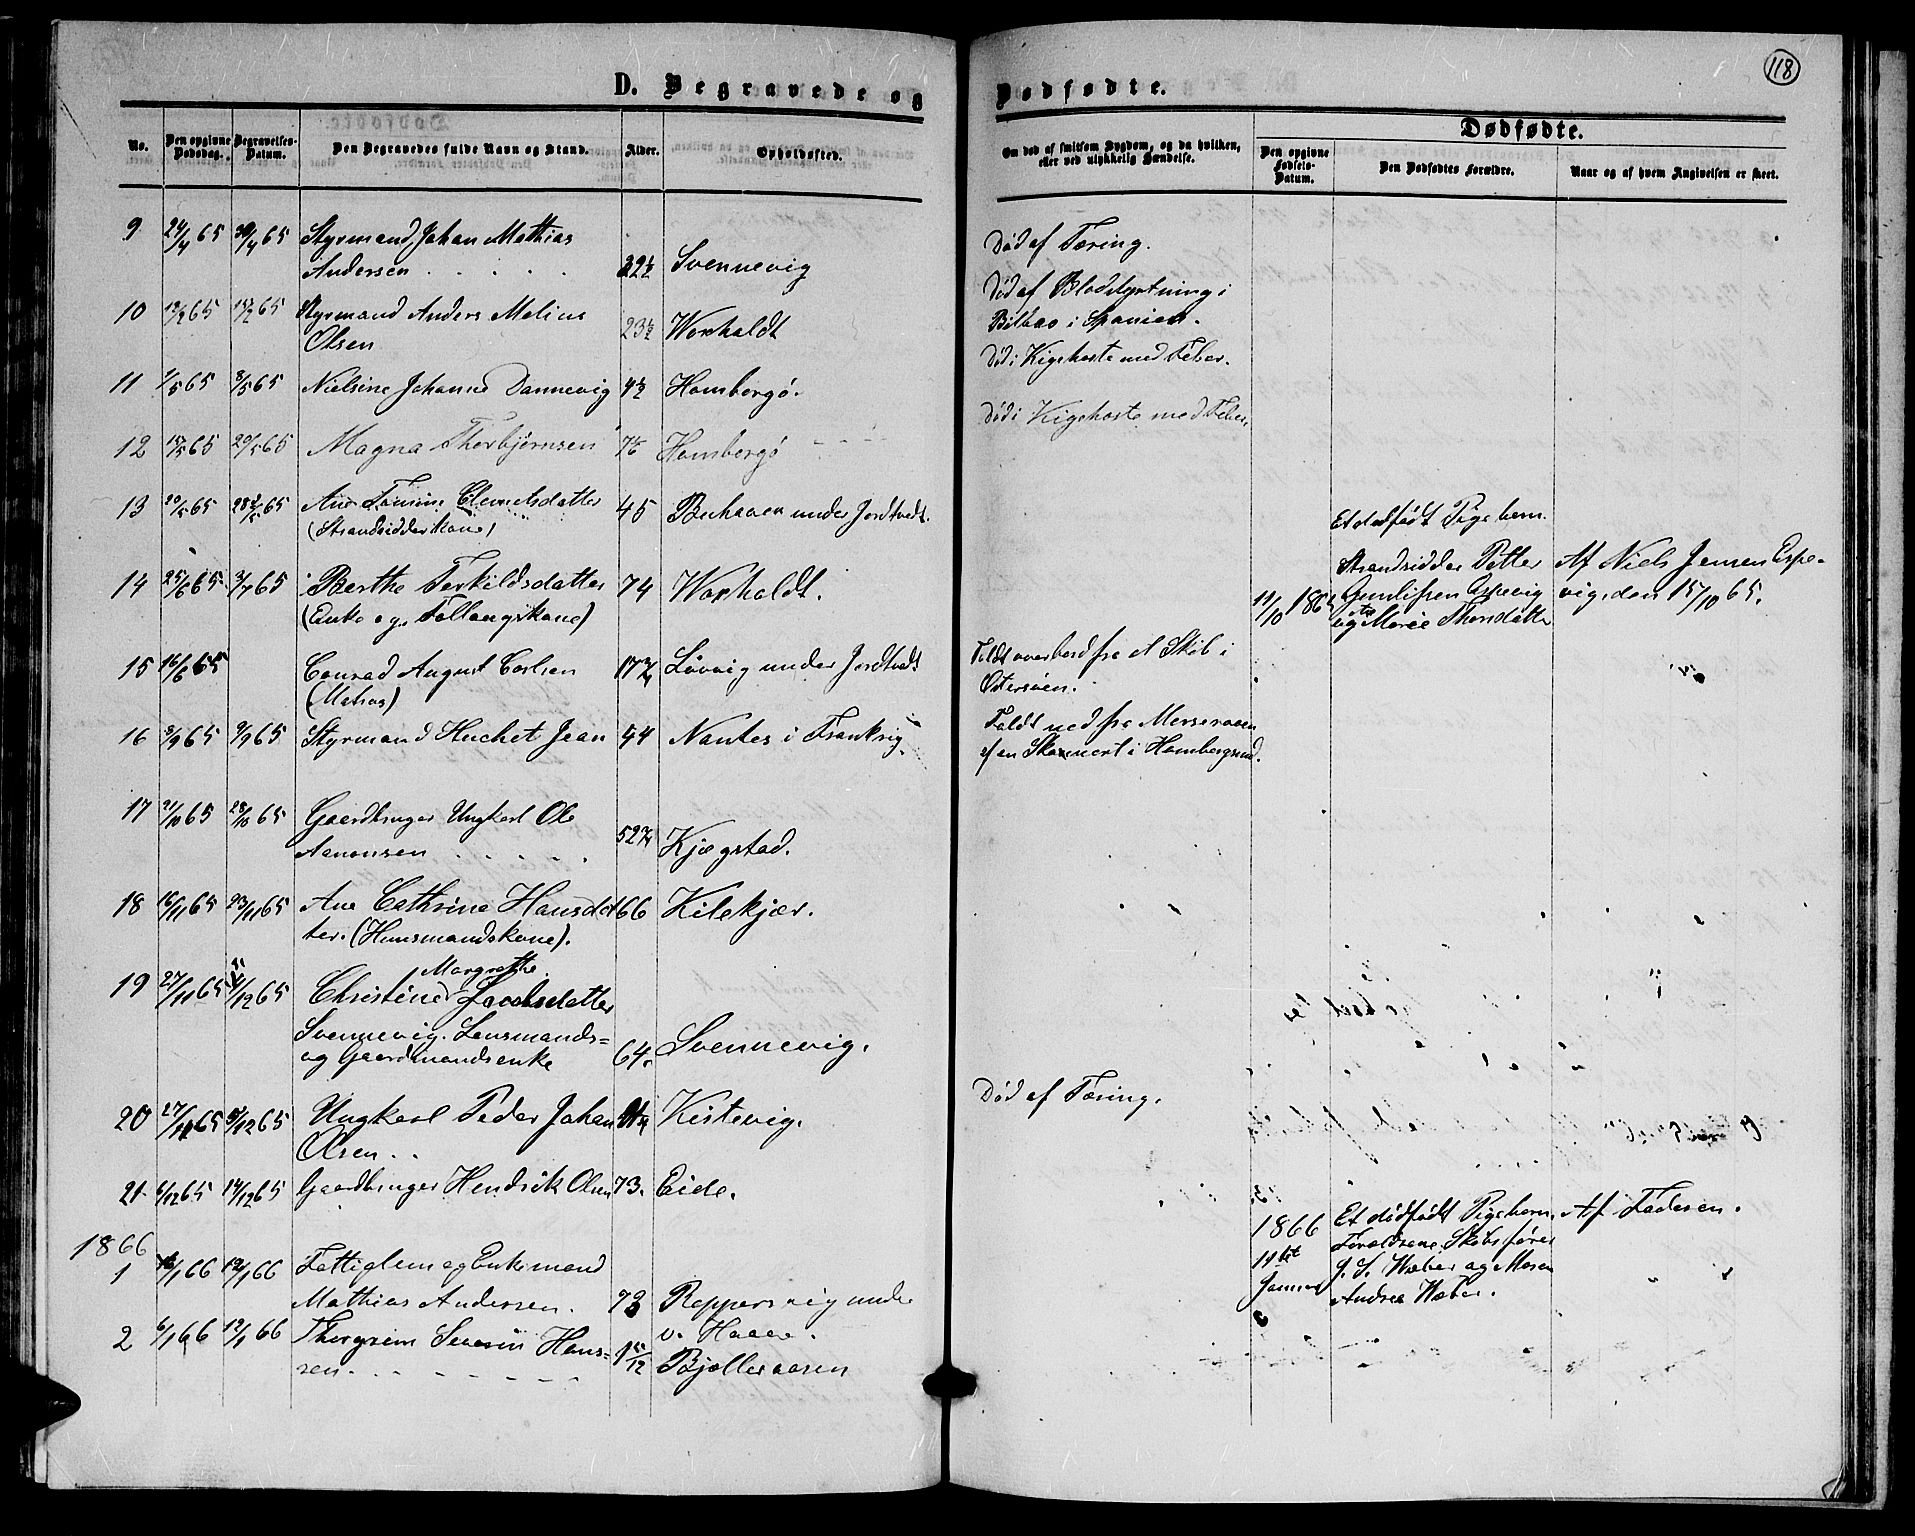 118
D. Begravede og Dødfødte.
No. Den opgivne Dødsdag. Begravelses-Datum. Den Begravedes fulde Navn og Stand. Alder. Opholdssted. Om død af smitsom Sygdom, og da hvilken, eller ved ulykkelig Hændelse. Dødfødte.
Den opgivne Fødsels-Datum. Den Dødfødtes Forældre. Naar og af hvem Angivelsen er skeet.
9 24/4 65 30/4 65 Styrmand Johan Mathias
Andersen . . . . . 32½ Svennevig
Død af Tæring.
10 65 65 Styrmand Anders Melius
Olsen 23½ Voxhaldt
Død af Blodstyrtning i
Bilbao i Spanien.
11 1/5 65 8/5 65 Nielsine Johanne Dannevig 4½ Homborgø.
Død i Kigehoste med Feber.
12 15/5 65 20/5 65 Magna Thorbjørnsen Homborgø
Død i Kigehoste med Feber.
13 20/5 65 65 Ane Clemetsdatter 45 under Jordtvedt.
(Strandsidderkone)
14 25/6 65. 3/7 65 Berthe Terkildsdatter 74 Voxholdt.
(Enke og Follaugskone)
11/10 186
Et dødfødt Pigebarn.
Strandsidder Petter
Espevig
og Marie
Af Niels Jensen Espe-
vig, den 15/10 65.
15 16/6 65 Conrad August Carlsen Løvvig under Jordtvedt
(Matros)
Faldt overbord fra et Skib i
Østersøen.
16 8/9 65 9/9 65 Styrmand Huchet Jean 44 Nantes i Frankrig.
Faldt ned fra Merseraaen
af en Skonnert i Hombergsund.
17 21/10 65 28/10 65 Gaardbruger Ungkarl Ole
Aanonsen . . . . . 52¾ Kjægstad.
18 16/11 65 23/11 65 Ane Cathrine Hansdat 66 Kilekjær.
ter. (Huusmandskone).
19 27/11 65 /12 65 Christine Margrethe Jacobsdatter
Svennevig. Lensmands-
og Gaardmandsenke 64. Svennevig.
20 27/11 65 /12 65 Ungkarl Peder Johan Kistevig.
Olsen . .
Død af Tæring.
21 6/12 65 14/12 65 Gaardbruger Hendrik Olsen 73. Eide.
1866
1 /1 66 12/1 66 Fattiglem og Enkemand
Mathias Andersen. 73 Reppersvig under
v. Haave.
1866
11te
Januar
Et dødfødt Pigebarn.
Forældrene: Skibsfører
J. S. Weber og Maren
Andrea Weber.
Af Faderen.
2 6/1 66 12/1 66 Thorgrim Severin Hans-
sen. . . . . . . . 1 5/12 Bjelleraasen